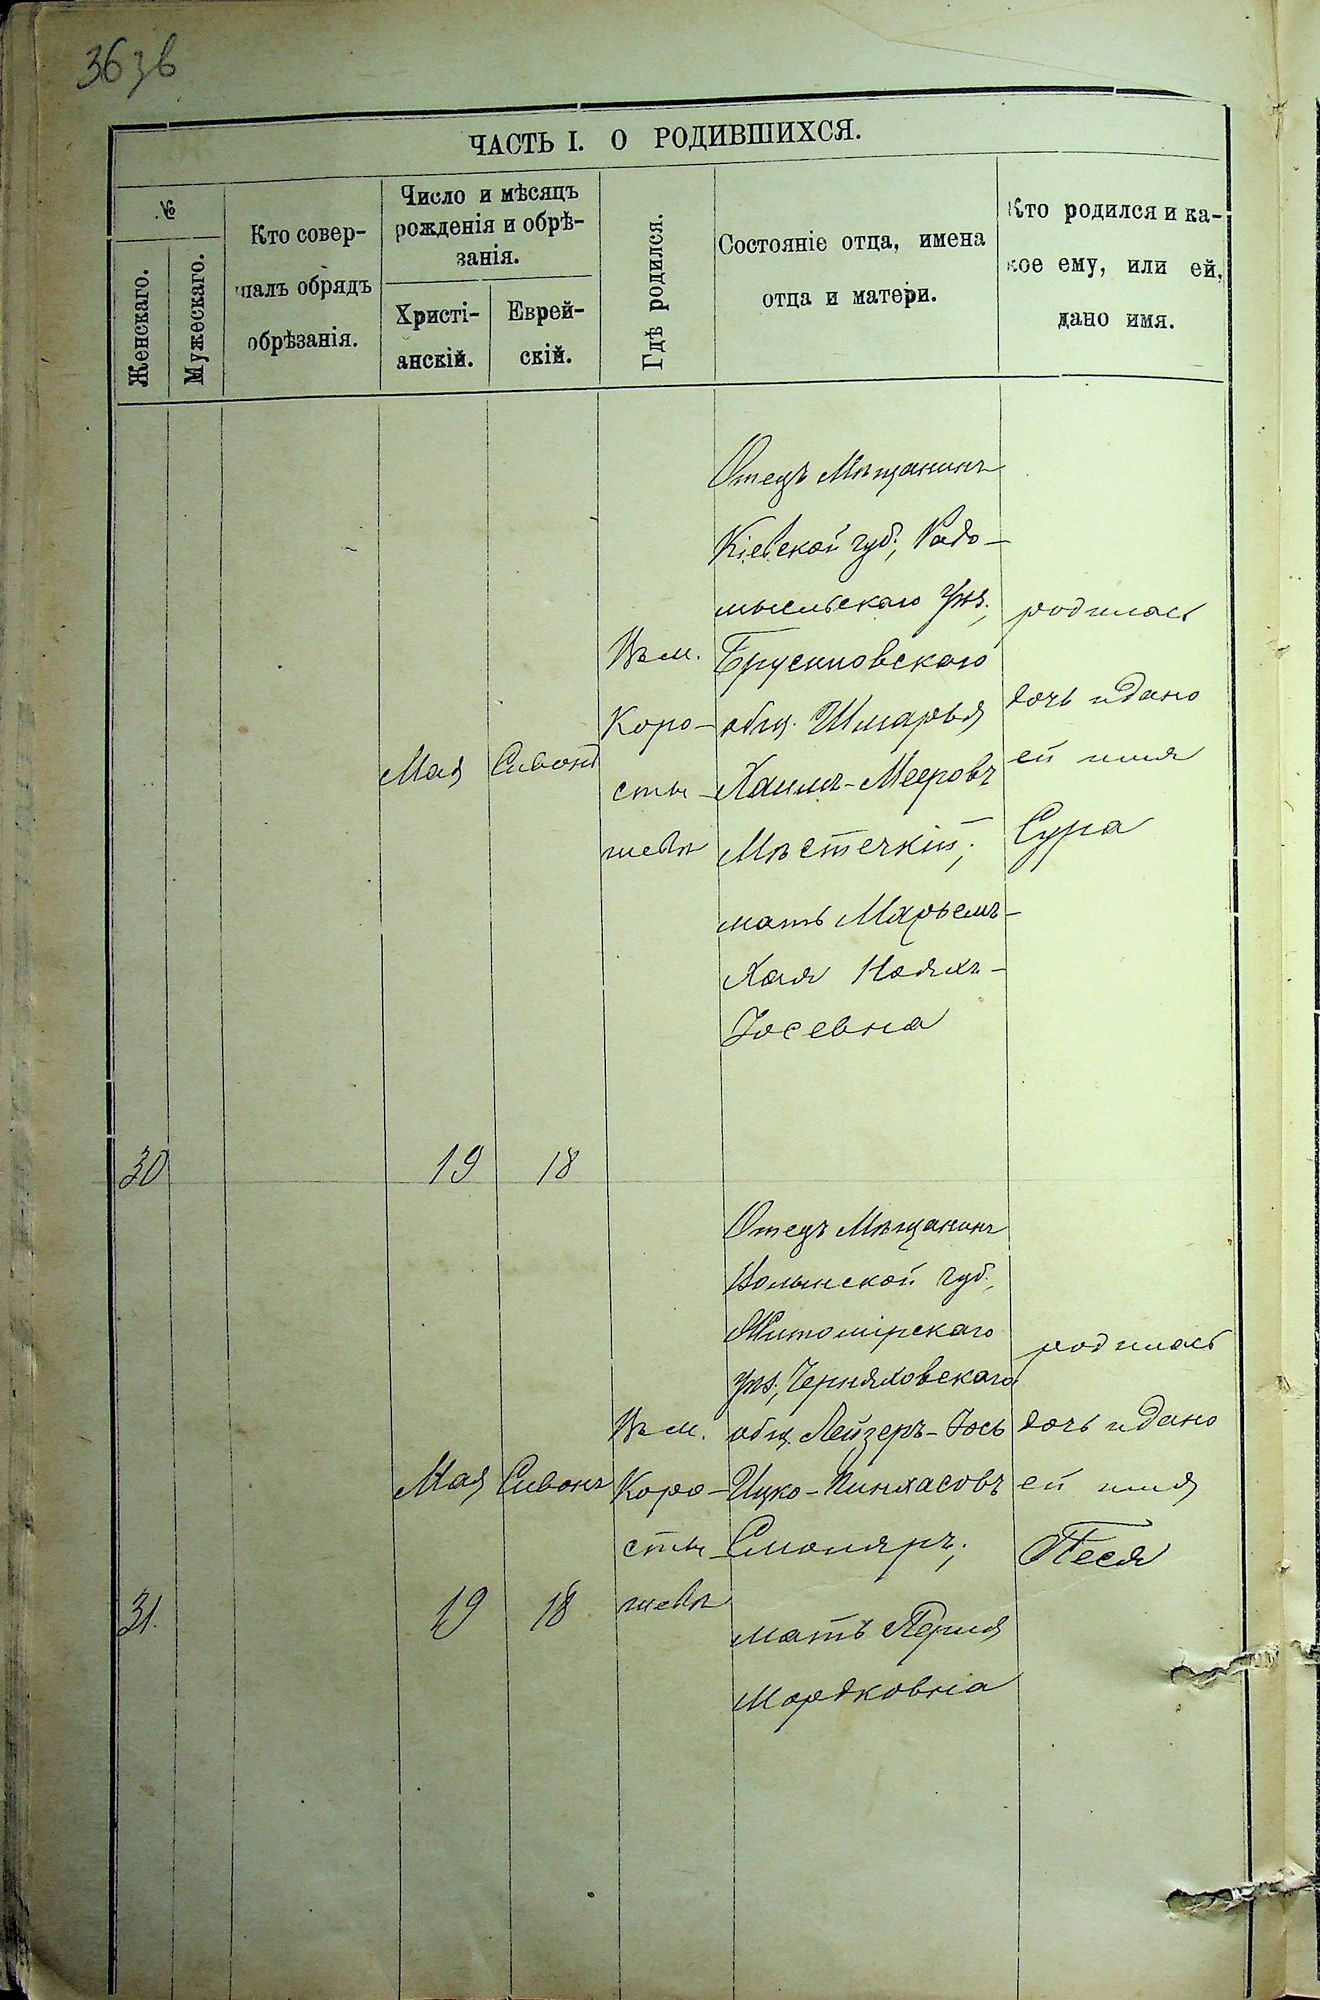 363 в
ЧАСТЬ I. О РОДИВШИХСЯ.
№
Женскаго.
Мужескаго.
Кто совер-
шалъ обрядъ
обрѣзанія.
Число и мѣсяцъ
рожденія и обрѣ-
занія.
Христі-
анскій.
Еврей-
скій.
Гдѣ родился.
Состояніе отца, имена
отца и матери.
Кто родился и ка-
кое ему, или ей,
дано имя.
30
Мая
19
Сивонъ
18
Въ м.
Коро-
сты-
шевѣ
Отецъ Мѣщанинъ
Кіевской губ., Радо-
мысльскаго Уѣз.,
Брусиловскаго
общ. Шмарья
Хаимъ-Мееровъ
Мѣстечкій;
мать Марьемъ-
Хая Ноахъ-
Іосевна
родилась
дочь и дано
ей имя
Сура
31.
Мая
19
Сивонъ
18
Въ м.
Коро-
сты-
шевѣ
Отецъ Мѣщанинъ
Волынской губ.,
Житомірскаго
уѣз., Черняховскаго
общ. Лейзеръ-Іось
Ицко-Пинхасовъ
Смоляръ;
мать Перля
Мордковна
родилась
дочь и дано
ей имя
Песя